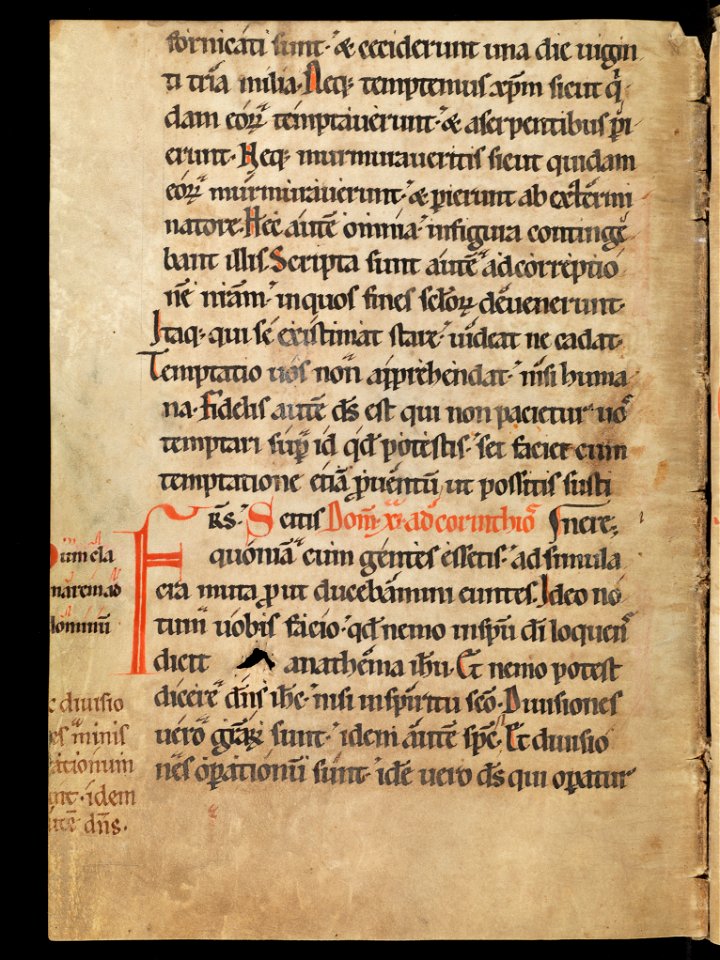 fornicati sunt. & ceciderunt una die uigin
ti tria milia. Neq; temptemus xp̄m sicut q̇
dam eoꝝ temptauerunt. & aserpentibus ꝑi
erunt. Neq; murmuraueritis sicut quidam
eoꝝ murmurauerunt. & ꝑierunt ab extermi
natore. Hec autē omnia infigura continge
bant illis. Scripta sunt autē adcorreptio
nē nr̄am. inquos fines sc̄loꝝ deuenerunt.
Itaq; qui se existimat stare. uideat ne cadat.
Temptatio uos non apprehendat. nisi huma
na. Fidelis autē d̄s est qui non pacietur uo
temptari sup̄ id qd̄ potestis. set faciet cum
temptatione etiā ꝓuentū ut possitis susti
nere;
FR̄S. Scitis Dom̄ x ad corinthios
quoniā cum gentes essetis. ad simula
cra muta ꝓ ut ducebamini euntes. Ideo no
tum uobis facio. qd̄ nemo inspū dī loquens
dicit anathema ihū. Et nemo potest
dicere dn̄s ihc. nisi inspiritu sc̄o. Diuisiones
uero gr̄aꝝ sunt. idem autem sps̄. Et diuisio
nes oꝑationū sunt. idē uero d̄s qui oꝑatur
Dum cla
marem ad
dominū
et diuisio
nes minis
trationum
sunt. idem
autē dn̄s.